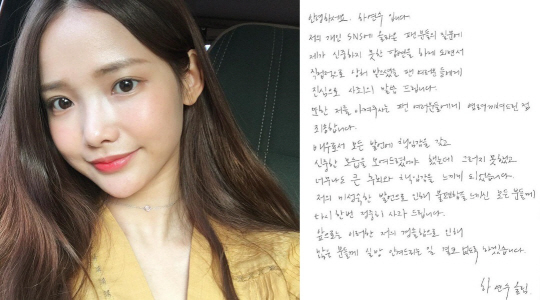 안녕하세요. 하연수 입니다
저의 개인 SNS에 올라온 팬분들의 질문에
제가 신중하지 못한 답변을 하게 되면서
직접적으로 상처 받으셨을 팬 여러분들에게
진심으로 사죄의 말씀 드립니다.
또한 저를 아껴주시는 팬 여러분들에게 염려끼쳐드린 점
죄송합니다.
배우로서 모든 발언에 책임감을 갖고
신중한 모습을 보여드렸어야 했는데 그러지 못했고
너무나도 큰 후회와 책임감을 느끼게 되었습니다.
저의 미성숙한 발언으로 인해 불편함을 느끼신 모든 분들께
다시 한번 정중히 사과 드립니다.
앞으로는 이러한 저의 경솔함으로 인해
많은 분들께 실망 안겨드리는 일 결코 없도록 하겠습니다.
하연수 올림